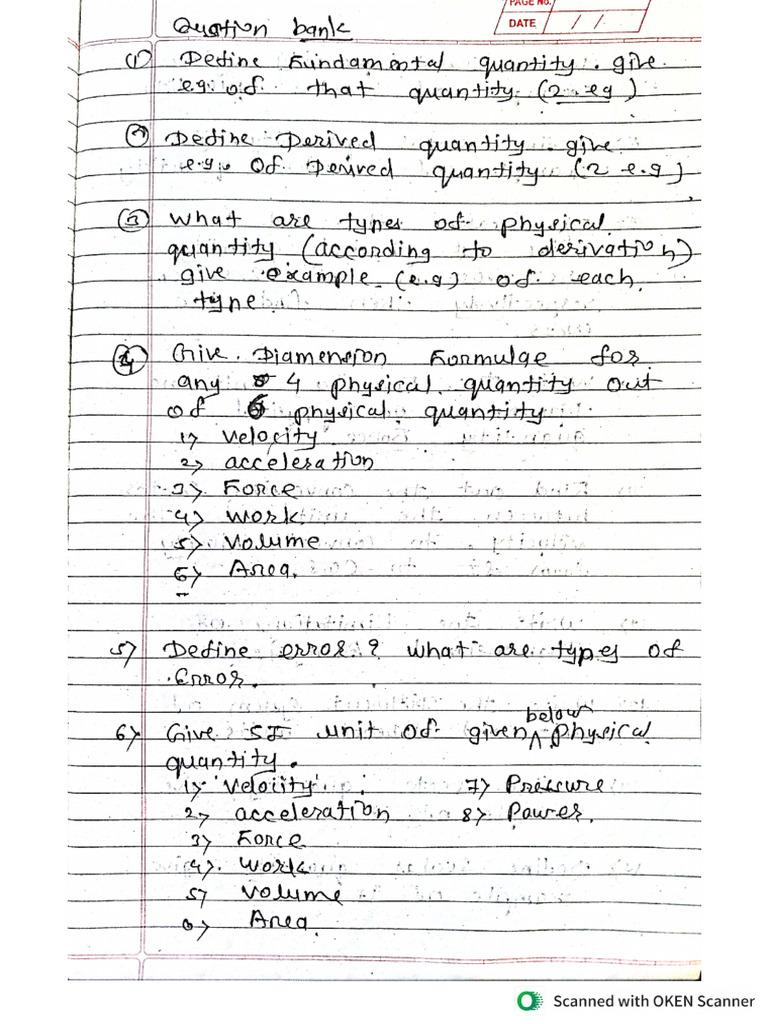 PAGE NO.
DATE / /
Question bank
(1) Define Fundamental quantity. give
e.g. of that quantity (2 e.g)
(2) Define Derived quantity. give
e.g. of Derived quantity (2 e.g)
(3) What are types of physical
quantity (according to derivation)
give example (e.g) of each
type.
(4) Give Diamension Formulae for
any 4 physical quantity out
of 6 physical quantity
1> velocity
2> acceleration
3> Force
4> work
5> volume
6> Area.
5> Define error? what are types of
Error.
6> Give SI unit of given below physical
quantity.
1> velocity 7> Pressure
2> acceleration 8> Power.
3> Force
4> work
5> volume
6> Area
Scanned with OKEN Scanner